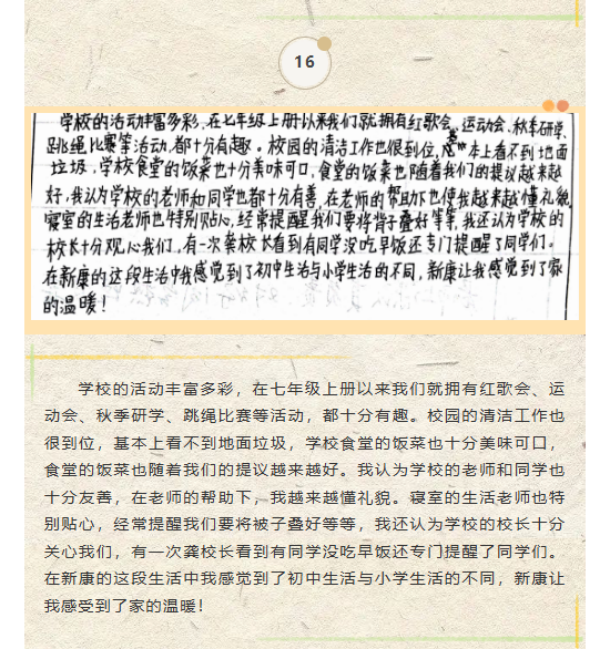 16
学校的活动丰富多彩,在七年级上册以来我们就拥有红歌会、运动会、秋季研学、
跳绳比赛等活动,都十分有趣。校园的清洁工作也很到位,基本上看不到地面
垃圾,学校食堂的饭菜也十分美味可口,食堂的饭菜也随着我们的提议越来越
好,我认为学校的老师和同学也都十分有善,在老师的帮助下也使我越来越懂礼貌,
寝室的生活老师也特别贴心,经常提醒我们要将背子叠好等等,我还认为学校的
校长十分观心我们,有一次龚校长看到有同学没吃早饭还专门提醒了同学们。
在新康的这段生活中我感觉到了初中生活与小学生活的不同,新康让我感觉到了家
的温暖!
学校的活动丰富多彩,在七年级上册以来我们就拥有红歌会、运
动会、秋季研学、跳绳比赛等活动,都十分有趣。校园的清洁工作也
很到位,基本上看不到地面垃圾,学校食堂的饭菜也十分美味可口,
食堂的饭菜也随着我们的提议越来越好。我认为学校的老师和同学也
十分友善,在老师的帮助下,我越来越懂礼貌。寝室的生活老师也特
别贴心,经常提醒我们要将被子叠好等等,我还认为学校的校长十分
关心我们,有一次龚校长看到有同学没吃早饭还专门提醒了同学们。
在新康的这段生活中我感觉到了初中生活与小学生活的不同,新康让
我感受到了家的温暖!